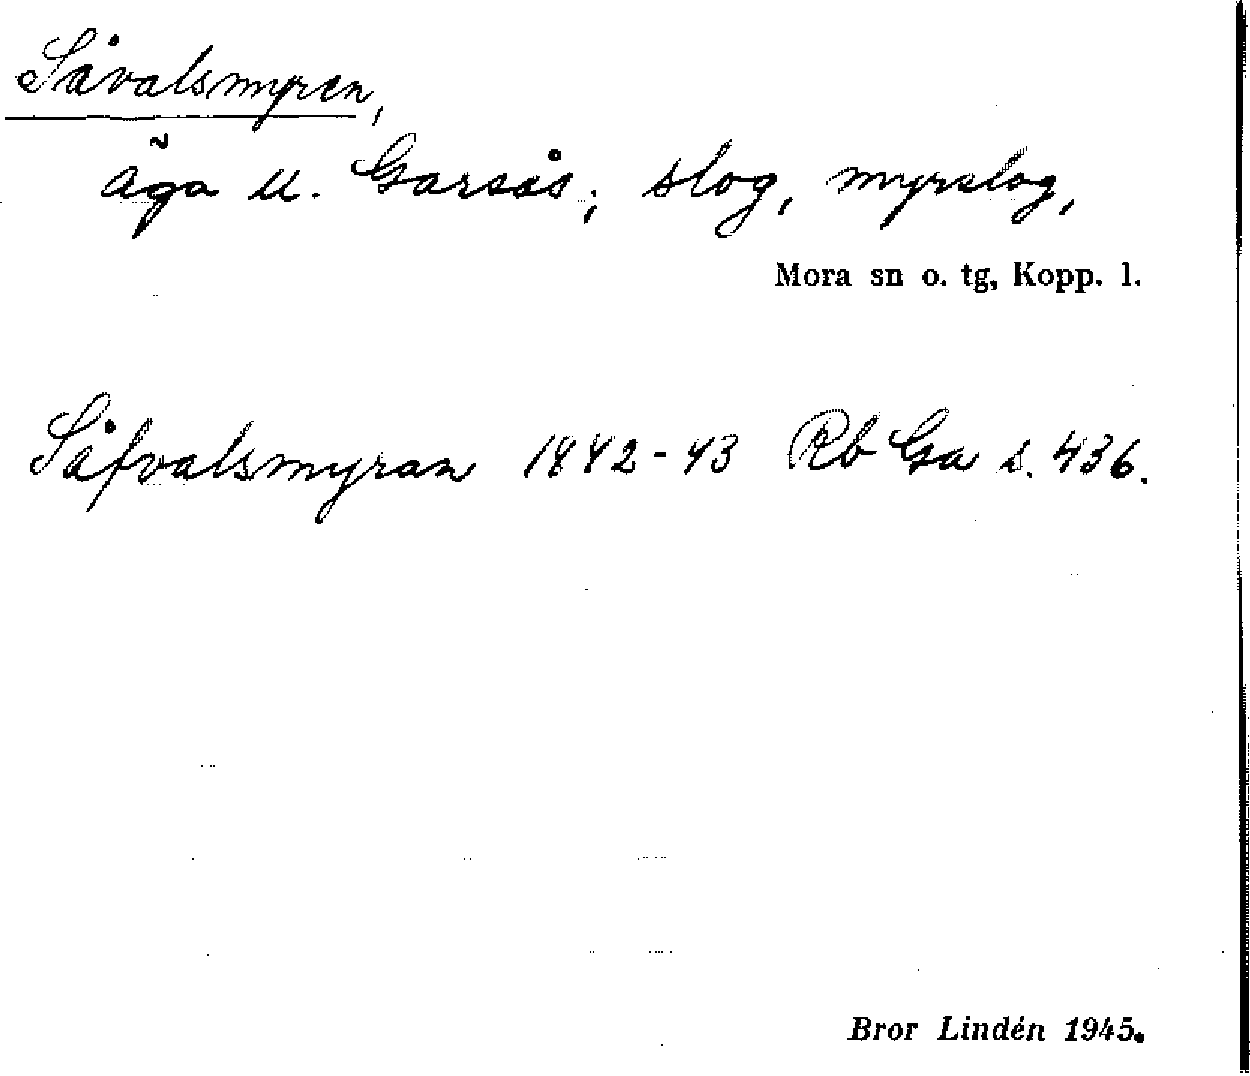 Såvalsmyren,
äga u. Garsås; slog, myrslog,
Mora sn o. tg, Kopp. l.
Såfvalsmyran 1842-43 Rb Ga s. 436.
Bror Lindén 1945.